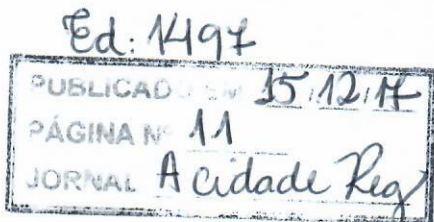 Ed: 1497
PUBLICADO EM 15.12.17
PÁGINA Nº 11
JORNAL A cidade Reg